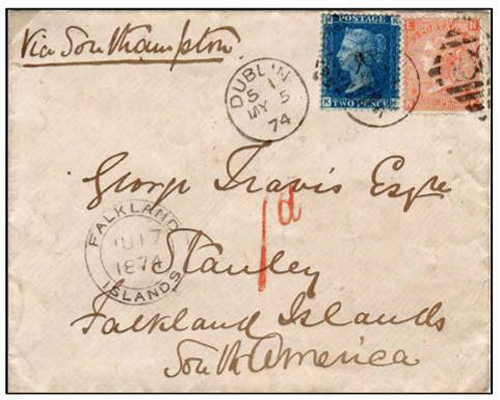 Via Southampton
DUBLIN
S 1
MY 5
74
POSTAGE
TWO PENCE
George Travis Esqre
1d
FALKLAND
JU 17
1874
ISLANDS
Stanley
Falkland Islands
South America